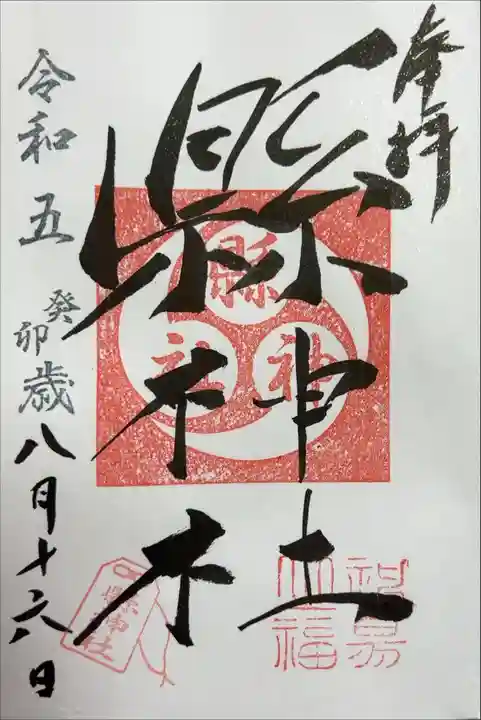 奉拝
縣神社
縣神社
縣神社
令和五癸卯歳八月十六日